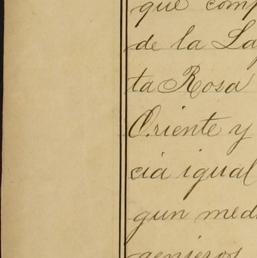 que comp
de la La
ta Rosa
Oriente y
cia igual
gun med
genieros